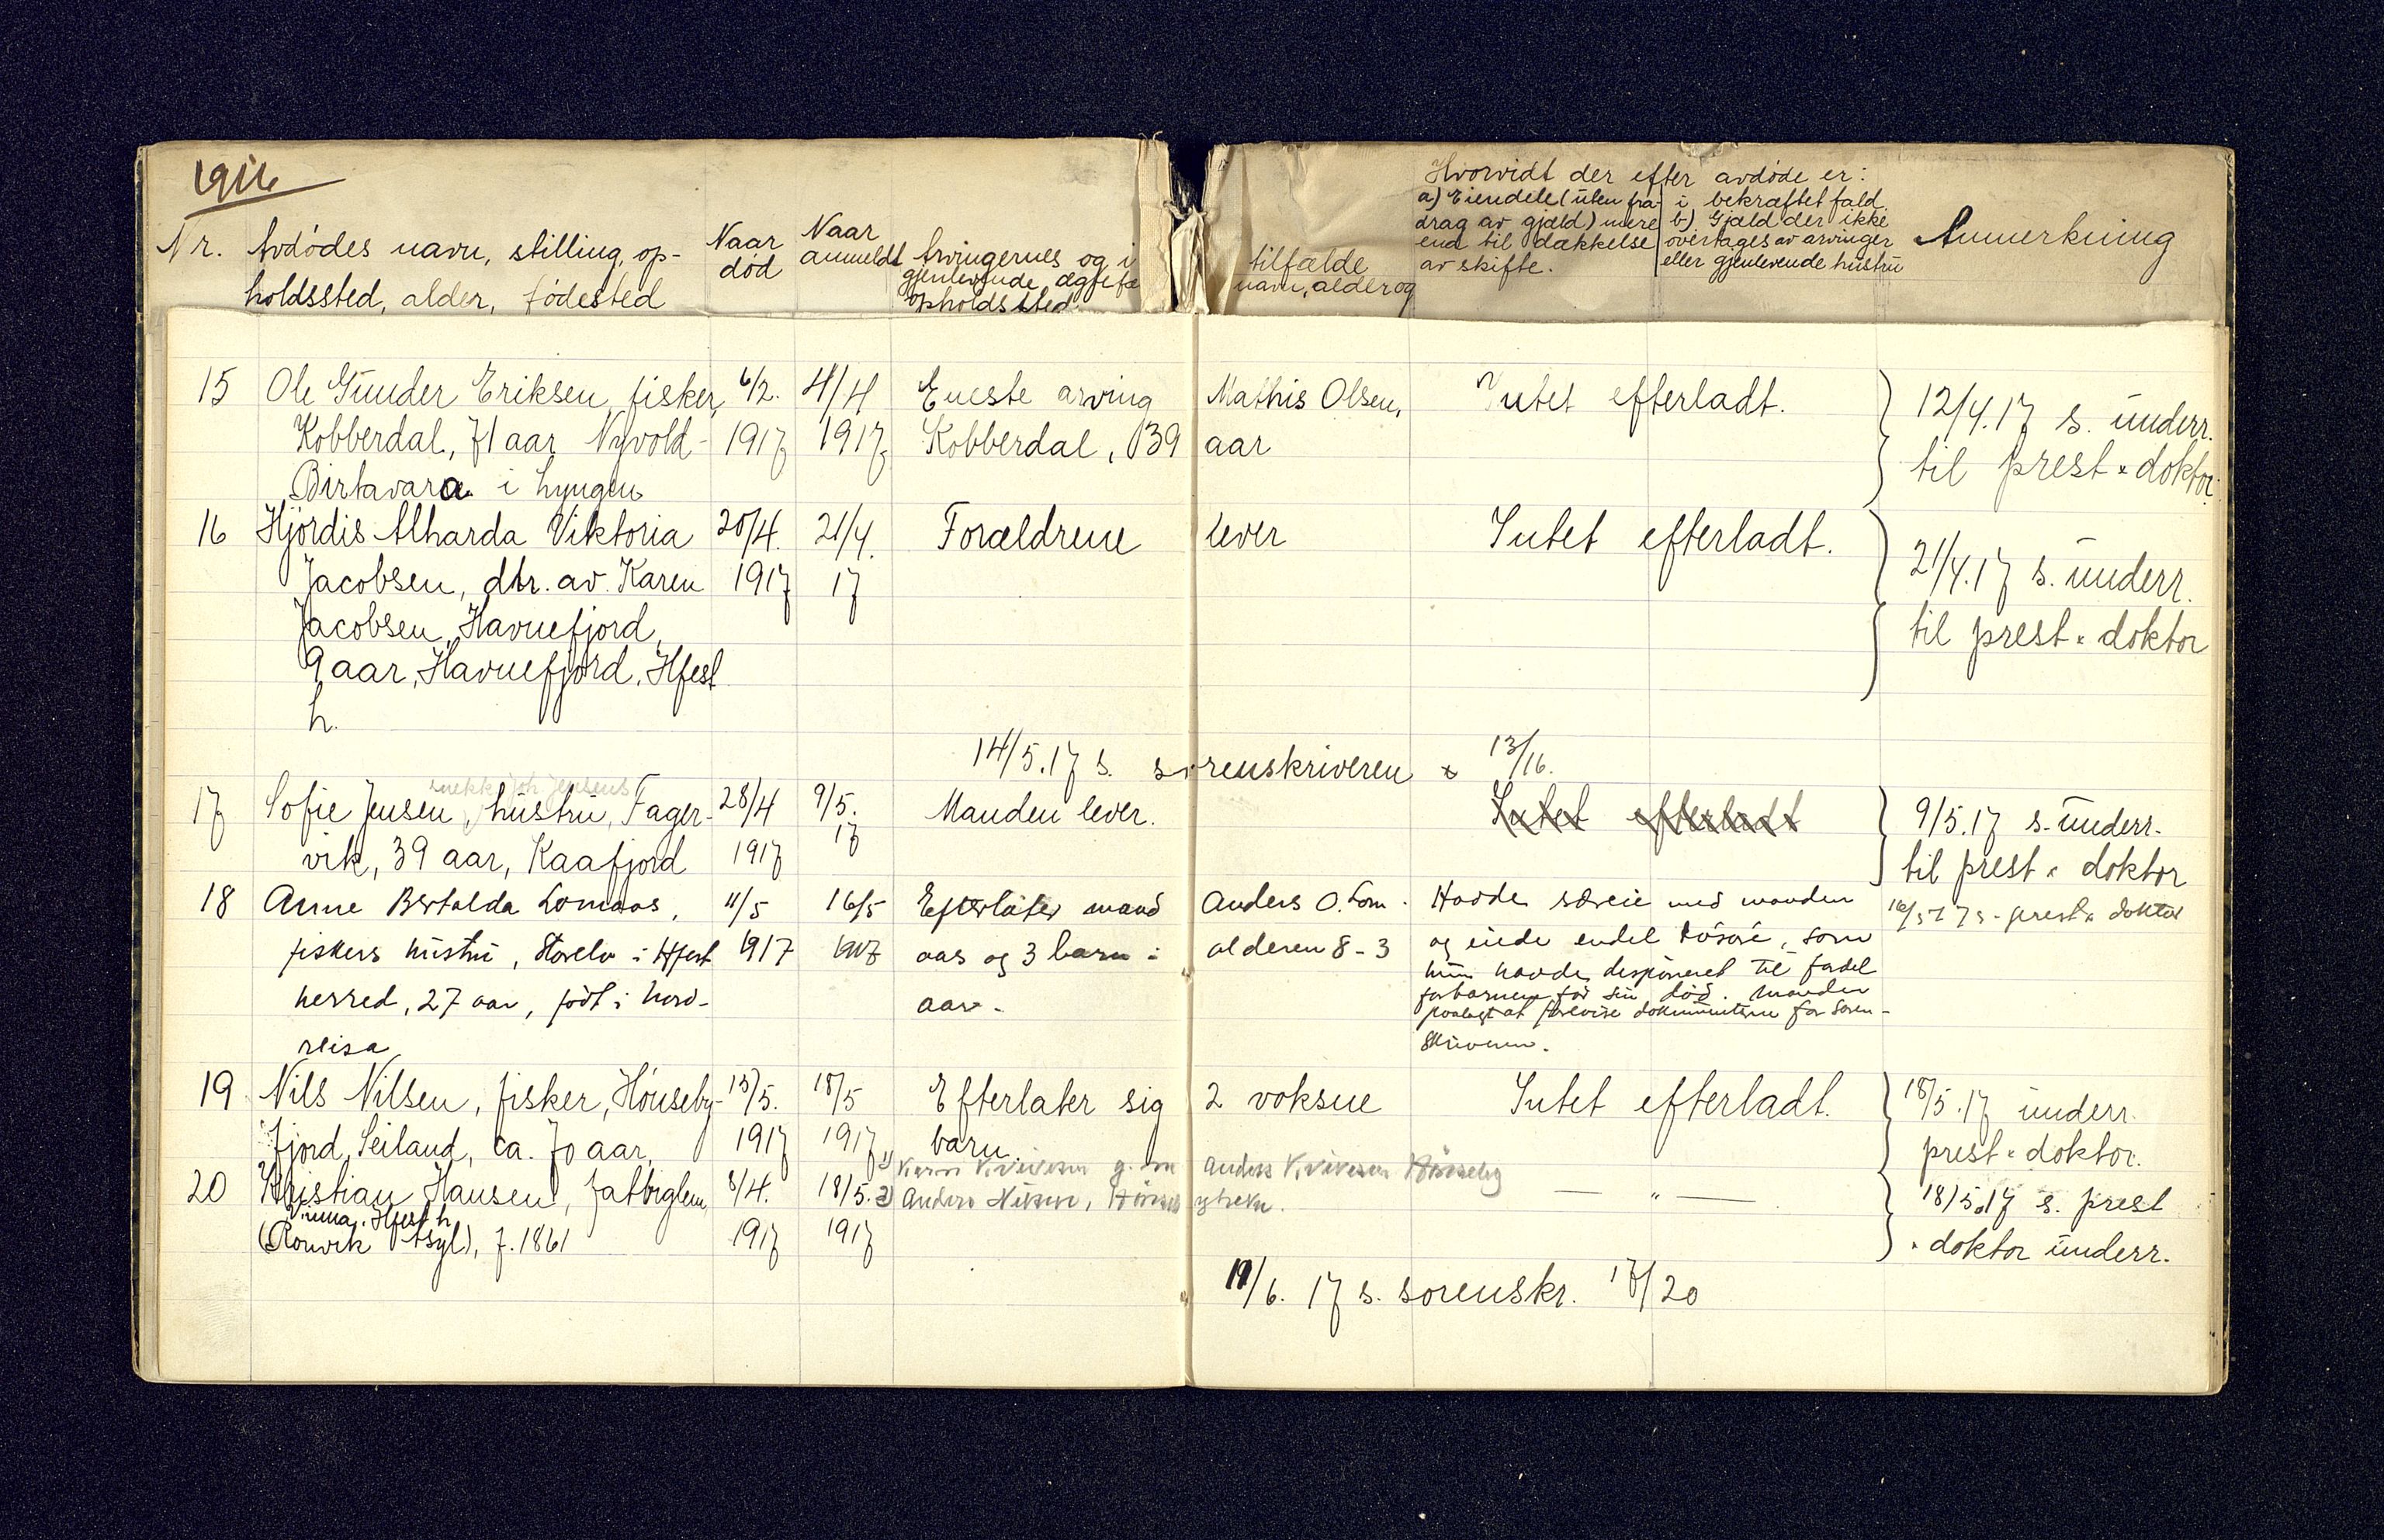 1916
Nr. Avdødes navn, stilling, op-
holdssted, alder, fødested
Naar
død
Naar
anmeldt
Arvingernes og i
gjenlevende ægtefæ
opholdssted
tilfælde
navn, alder og
Hvorvidt der efter avdøde er:
a) Eiendele (uten fra-
drag av gjæld) mere
end til dækkelse
av skifte.
i bekræftet fald
b) Gjæld der ikke
overtages av arvinger
eller gjenlevende hustru
Anmerkning
15 Ole Gunder Eriksen, fisker, 6/2. 4/4 Eneste arving Mathis Olsen, Intet efterladt. 12/4.17 s. underr.
Kobberdal, 71 aar Nyvold- 1917 1917 Kobberdal, 39 aar til prest & doktor
Birtavara i Lyngen
16 Hjørdis Alharda Viktoria 20/4. 21/4. Forældrene lever Intet efterladt. 21/4.17 s. underr.
Jacobsen, dtr. av Karen 1917 17 til prest & doktor
Jacobsen, Havnefjord,
9 aar, Havnefjord, Hfest
h.
14/5.17 s. sorenskriveren & 13/16.
17 Sofie Jensen, hustru, Fager- 28/4 9/5. Manden lever. Intet efterladt 9/5.17 s. underr.
vik, 39 aar, Kaafjord 1917 17 til prest & doktor
18 Anne Bertolda Lomaas, 11/5 16/5 Efterlater mand Anders O. Lom- Hadde særeie med manden 16/5 17 s. prest & doktor
fiskers hustru, Storelv i Hfest 1917 1917 aas og 3 barn i alderen 8-3 og eiede endel løsøre, som
herred, 27 aar, født i Nord- aar. hun hadde disponeret til fordel
for barnene før sin død. Manden
paalagt at forevise dokumenterne for soren-
reisa skriveren.
19 Nils Nilsen, fisker, Hønseby- 15/5. 18/5 Efterlater sig 2 voksne Intet efterladt. 18/5.17 underr.
fjord, Seiland, ca. 70 aar, 1917 1917 barn prest & doktor.
1) Anders Hønseby
20 Kristian Hansen, fattiglem, 8/4. 18/5. 2) Anders Nilsen, — " — 18/5.17 s. prest
Hfest h
(Rønvik Asyl), f. 1861 1917 1917 & doktor underr.
19/6. 17 s. sorenskr. 17/20